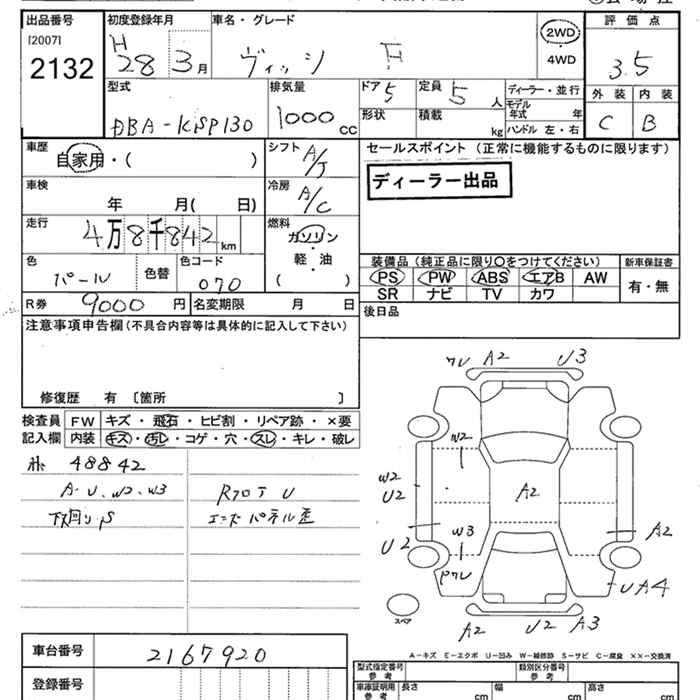 出品番号
[2007]
2132
初度登録年月
H 28 3月
車名・グレード
ヴィッツ F
2WD
・
4WD
評価点
3.5
外装 内装
C B
型式
DBA-KSP130
排気量
1000 CC
ドア 5
形状
定員 5 人
積載 kg
ディーラー・並行
モデル年式 年
ハンドル 左・右
車歴
自家用・( )
シフト A/T
車検
年 月( 日)
冷房 A/C
走行
4万8千842 km
燃料
ガソリン
・
軽・油
( )
色
パール
色替
色コード
070
R券 9000 円
名変期限 月 日
セールスポイント (正常に機能するものに限ります)
ディーラー出品
装備品 (純正品に限り〇をつけてください)
PS PW ABS エアB AW
SR ナビ TV カワ
新車保証書
有・無
後日品
注意事項申告欄(不具合内容等は具体的に記入して下さい)
修復歴 有 〔箇所 〕
検査員記入欄
FW キズ・飛石・ヒビ割・リペア跡・×要
内装 キズ・汚レ・コゲ・穴・スレ・キレ・破レ
48842
A・U、W2、W3
下回りS
Rフロア U
エンドパネル歪
ワレ A2 U3
W2
W2
U2
A2
W3
U2
A2
ワレ
UA4
スペア
A2 U2 A3
A-キズ E-エクボ U-凹み W-補修跡 S-サビ C-腐食 ××-交換済
車台番号 2167920
登録番号
型式指定番号 参考
類別区分番号 参考
車庫証明用 参考
長さ cm
幅 cm
高さ cm